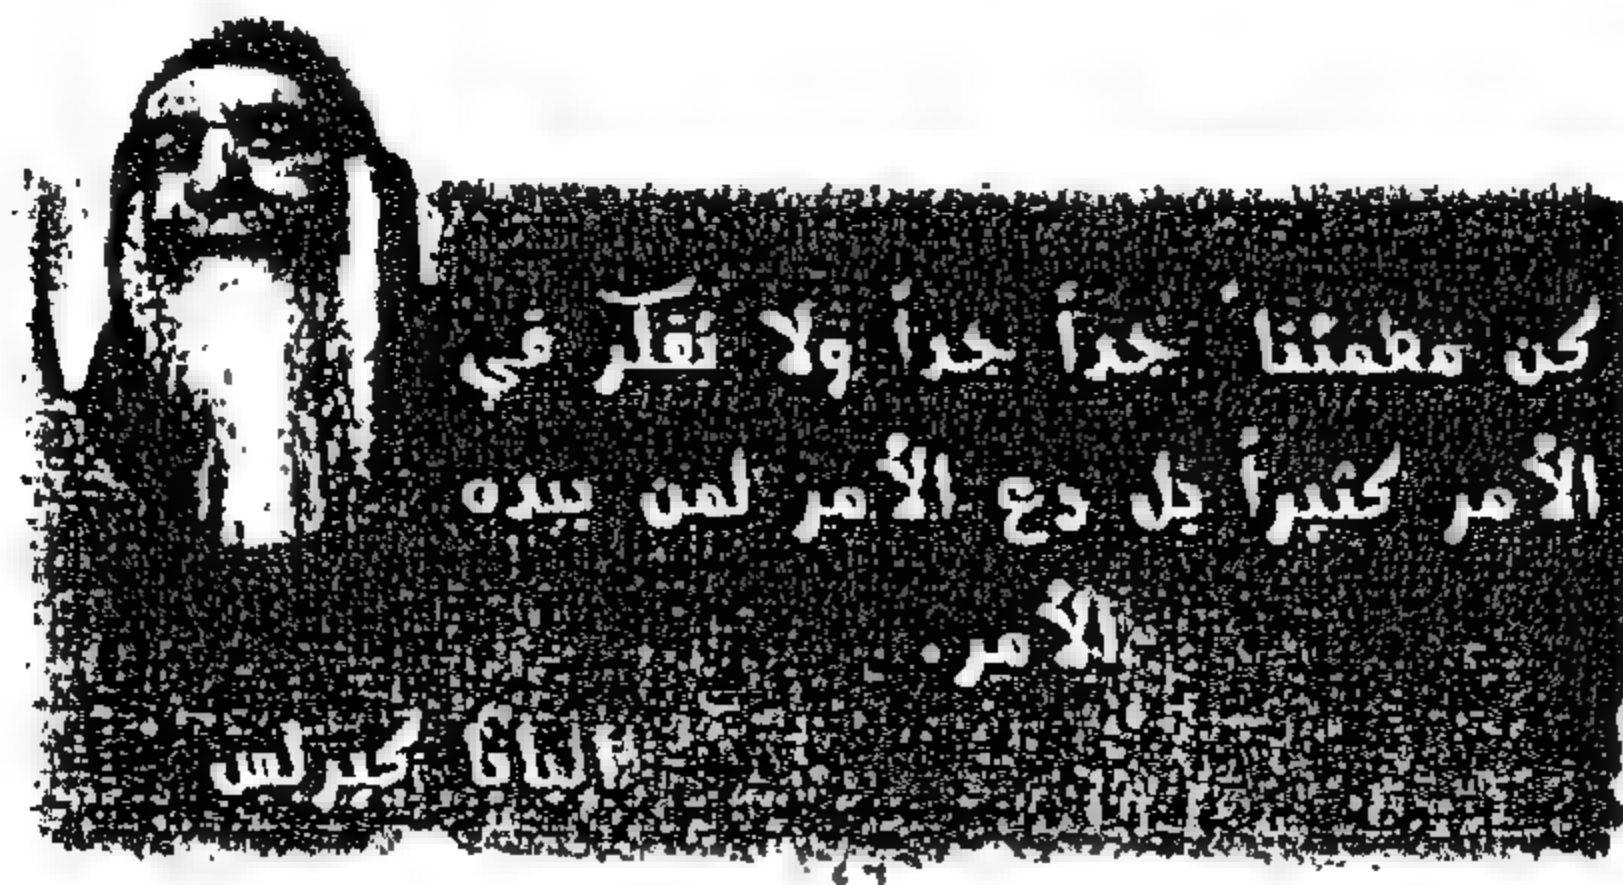 كن مطمئناً جداً جداً ولا تفكر في
الأمر كثيراً بل دع الأمر لمن بيده
الأمر .
البابا كيرلس